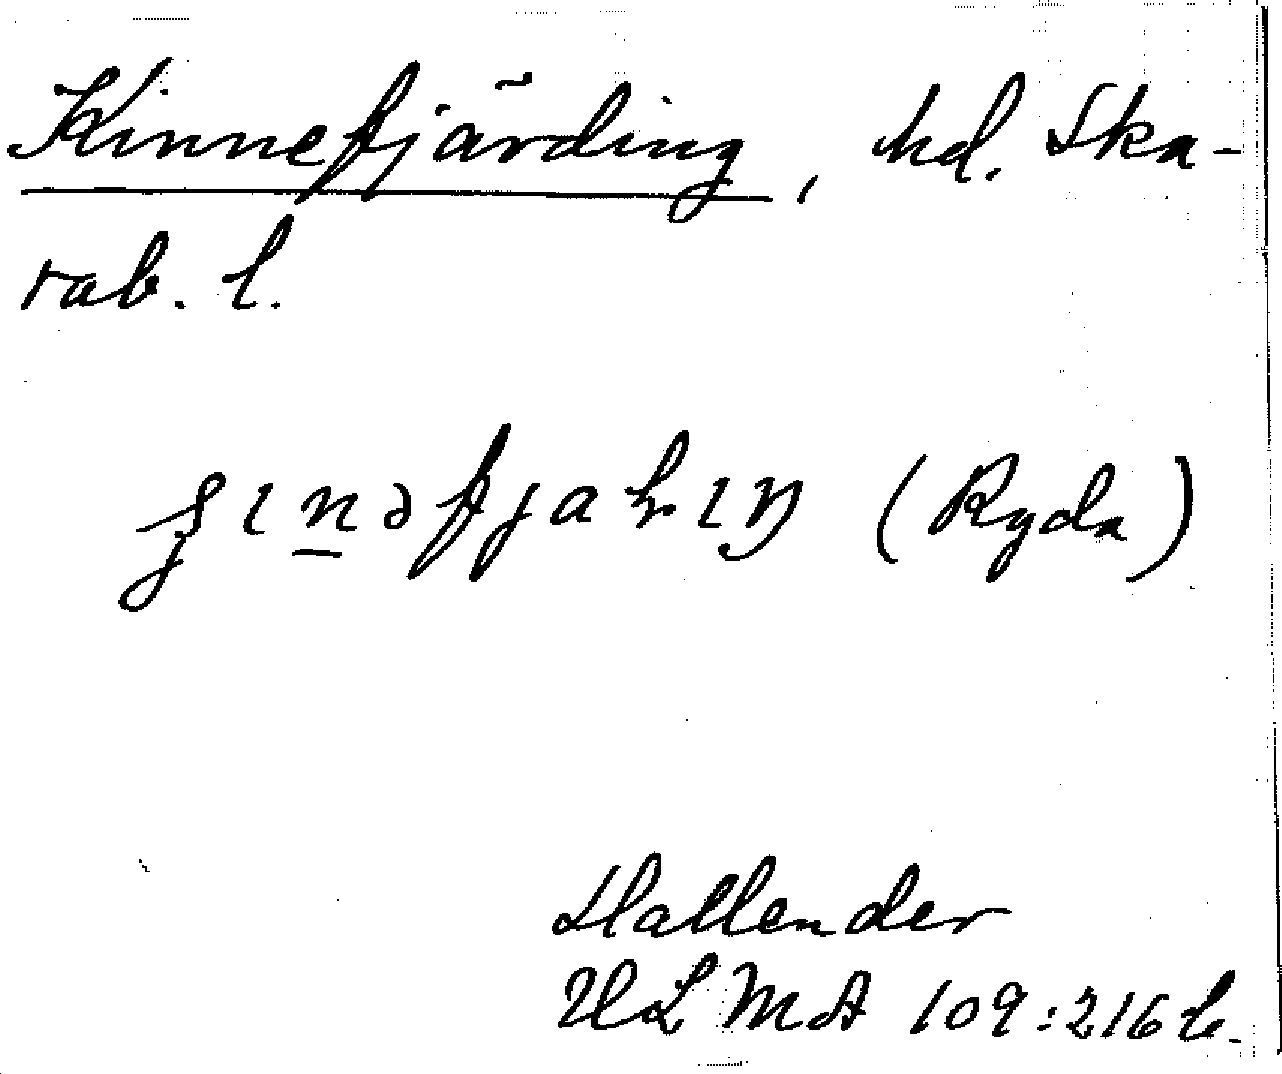 Kinnefjärding, hd. Ska-
rab. l.
ʝɩn̲əfjaꞕɩŋ (Ryda)
Hallender
ULMA 109:216 b.